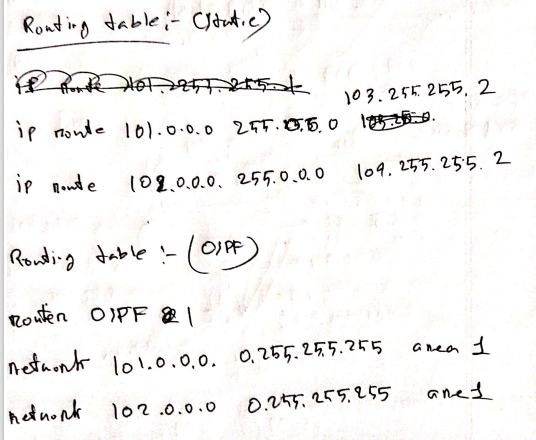 Routing table :- (Static)
ip route 101.255.255.1
103.255.255.2
ip route 101.0.0.0 255.0.0.0
ip route 102.0.0.0. 255.0.0.0 109.255.255.2
Routing table :- (OSPF)
router OSPF 1
network 101.0.0.0. 0.255.255.255 area 1
network 102.0.0.0 0.255.255.255 are 1